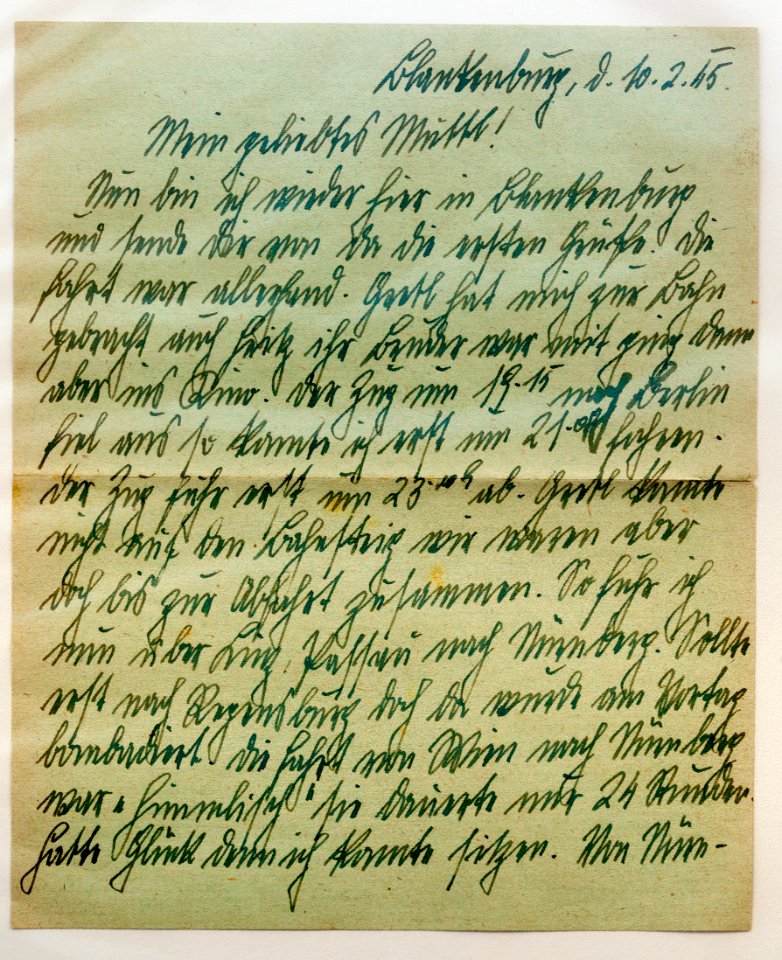 Blankenburg, d. 10.2.45.
Mein geliebtes Muttl!
Nun bin ich wieder hier in Blankenburg
und sende Dir von da die ersten Grüße. Die
Fahrt war allerhand. Gretl hat mich zur Bahn
gebracht auch Fritz ihr Bruder war mit ging dann
aber ins Kino. Der Zug um 19.15 nach Berlin
fiel aus so konnte ich erst um 21.00 fahren.
Der Zug fuhr erst um 23.00 ab. Gretl konnte
nicht auf den Bahnsteig wir waren aber
doch bis zur Abfahrt zusammen. So fuhr ich
nun über Linz, Passau nach Nürnberg. Sollte
erst nach Regensburg doch da wurde am Vortag
bombadiert. Die Fahrt von Wien nach Nürnberg
war "himmlisch" sie dauerte nur 24 Stunden.
Hatte Glück denn ich konnte sitzen. Von Nürn-